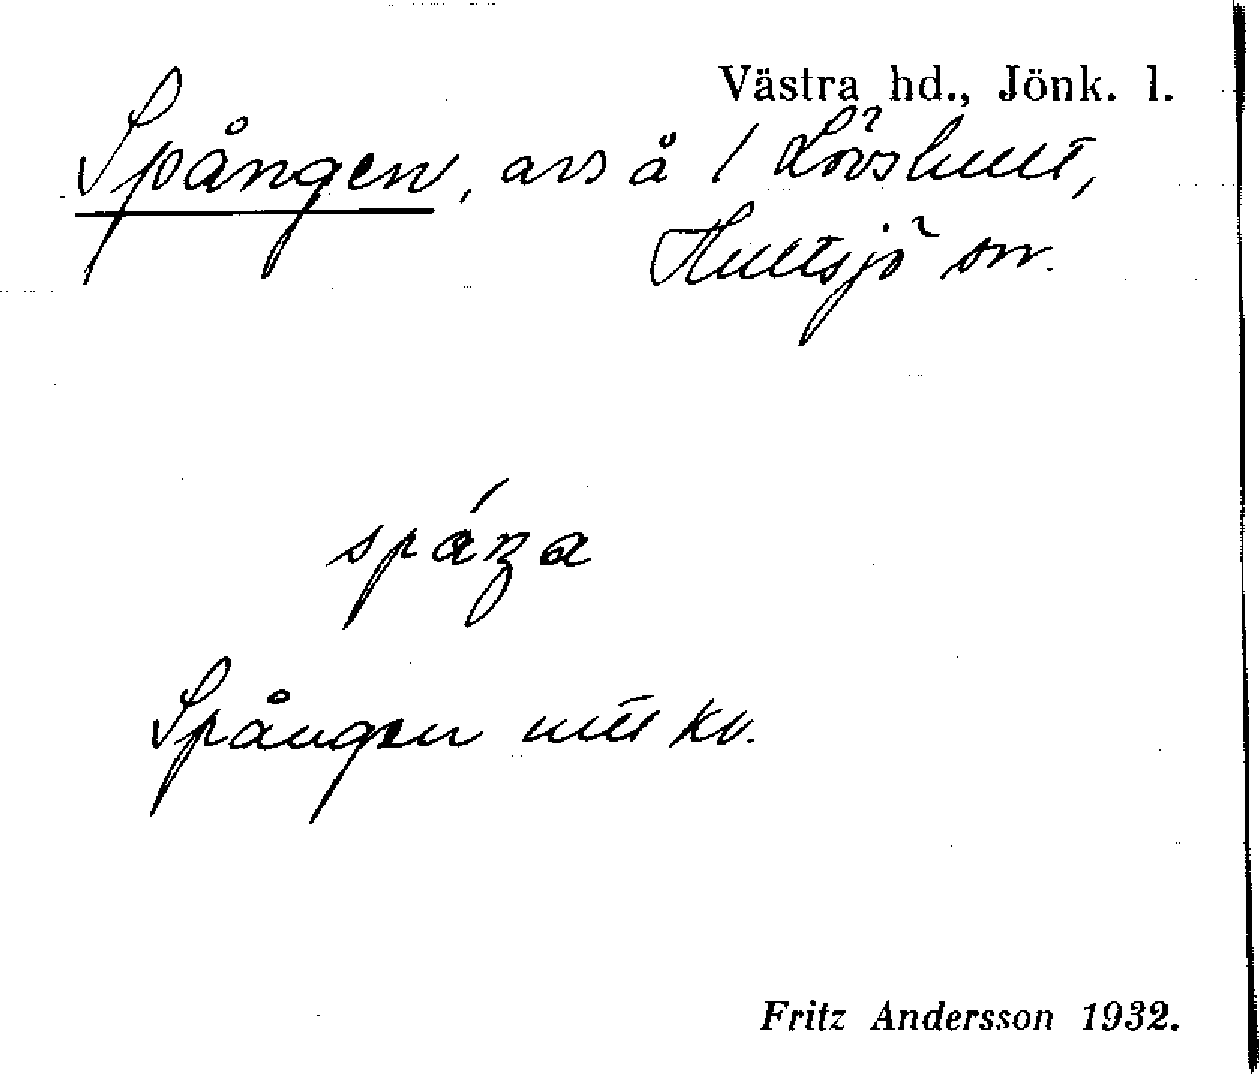 Västra hd., Jönk. l.
Spången, avs å / Lövshult,
Hultsjö sn.
spáŋa
Spången utt kv.
Fritz Andersson 1932.